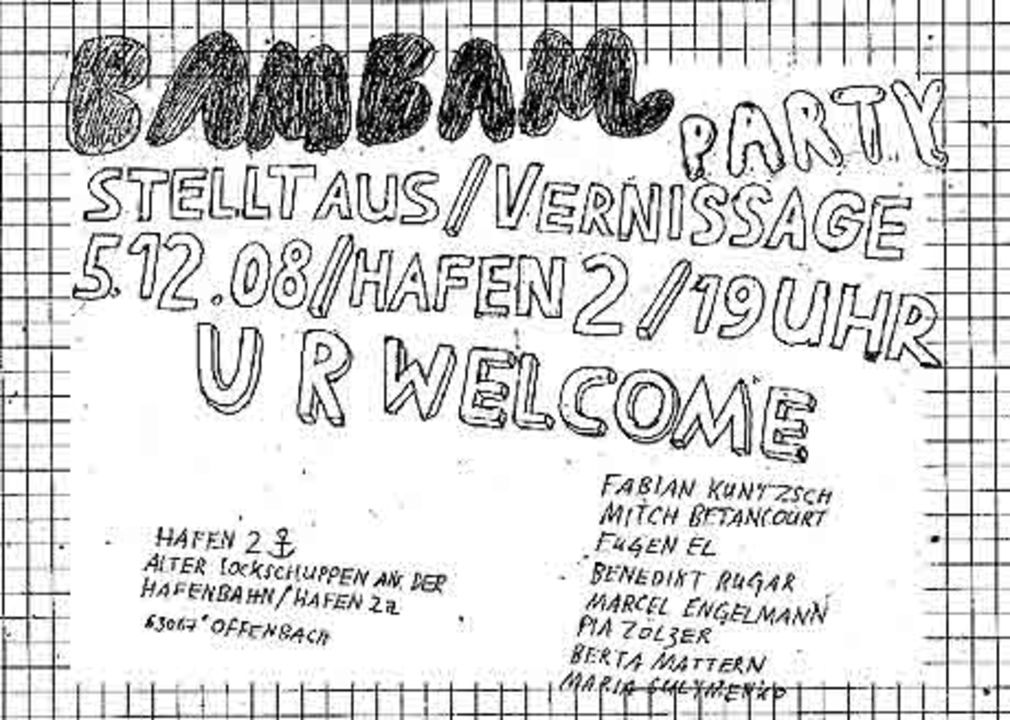 BAMBAM PARTY
STELLT AUS/VERNISSAGE
5.12.08/HAFEN 2/19 UHR
U R WELCOME
HAFEN 2
ALTER LOCKSCHUPPEN AN DER
HAFENBAHN/HAFEN 2a
63067 OFFENBACH
FABIAN KUNTZSCH
MITCH BETANCOURT
EUGEN EL
BENEDIKT RUGAR
MARCEL ENGELMANN
PIA ZÖLZER
BERTA MATTERN
MARIA